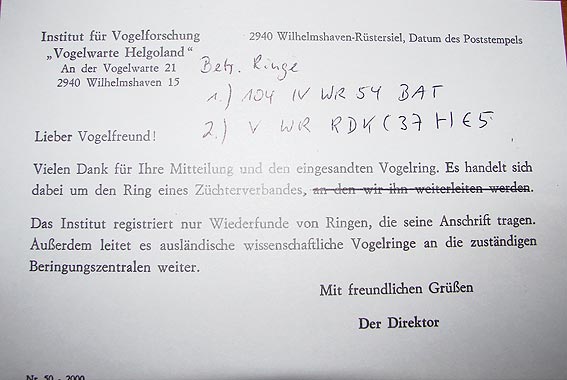 Institut für Vogelforschung
„Vogelwarte Helgoland"
An der Vogelwarte 21
2940 Wilhelmshaven 15
2940 Wilhelmshaven-Rüstersiel, Datum des Poststempels
Betr. Ringe
1.) 104 IV WR 54 BAT
2.) V WR RDK (37 H) E5
Lieber Vogelfreund!
Vielen Dank für Ihre Mitteilung und den eingesandten Vogelring. Es handelt sich
dabei um den Ring eines Züchterverbandes, an den wir ihn weiterleiten werden.
Das Institut registriert nur Wiederfunde von Ringen, die seine Anschrift tragen.
Außerdem leitet es ausländische wissenschaftliche Vogelringe an die zuständigen
Beringungszentralen weiter.
Mit freundlichen Grüßen
Der Direktor
Nr. 50 - 2000